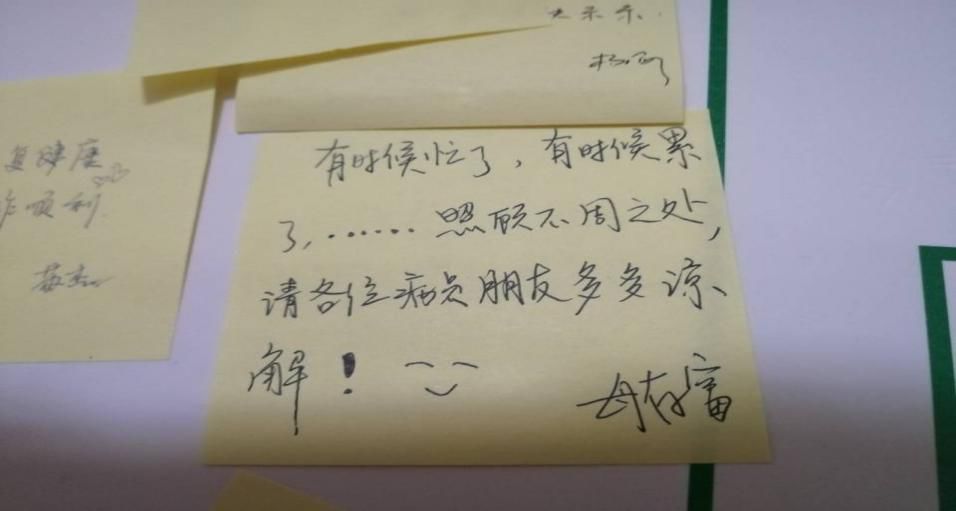 有时候忙了，有时候累
了，……照顾不周之处，
请各位病员朋友多多谅
解！
母存富
复健康
作顺利